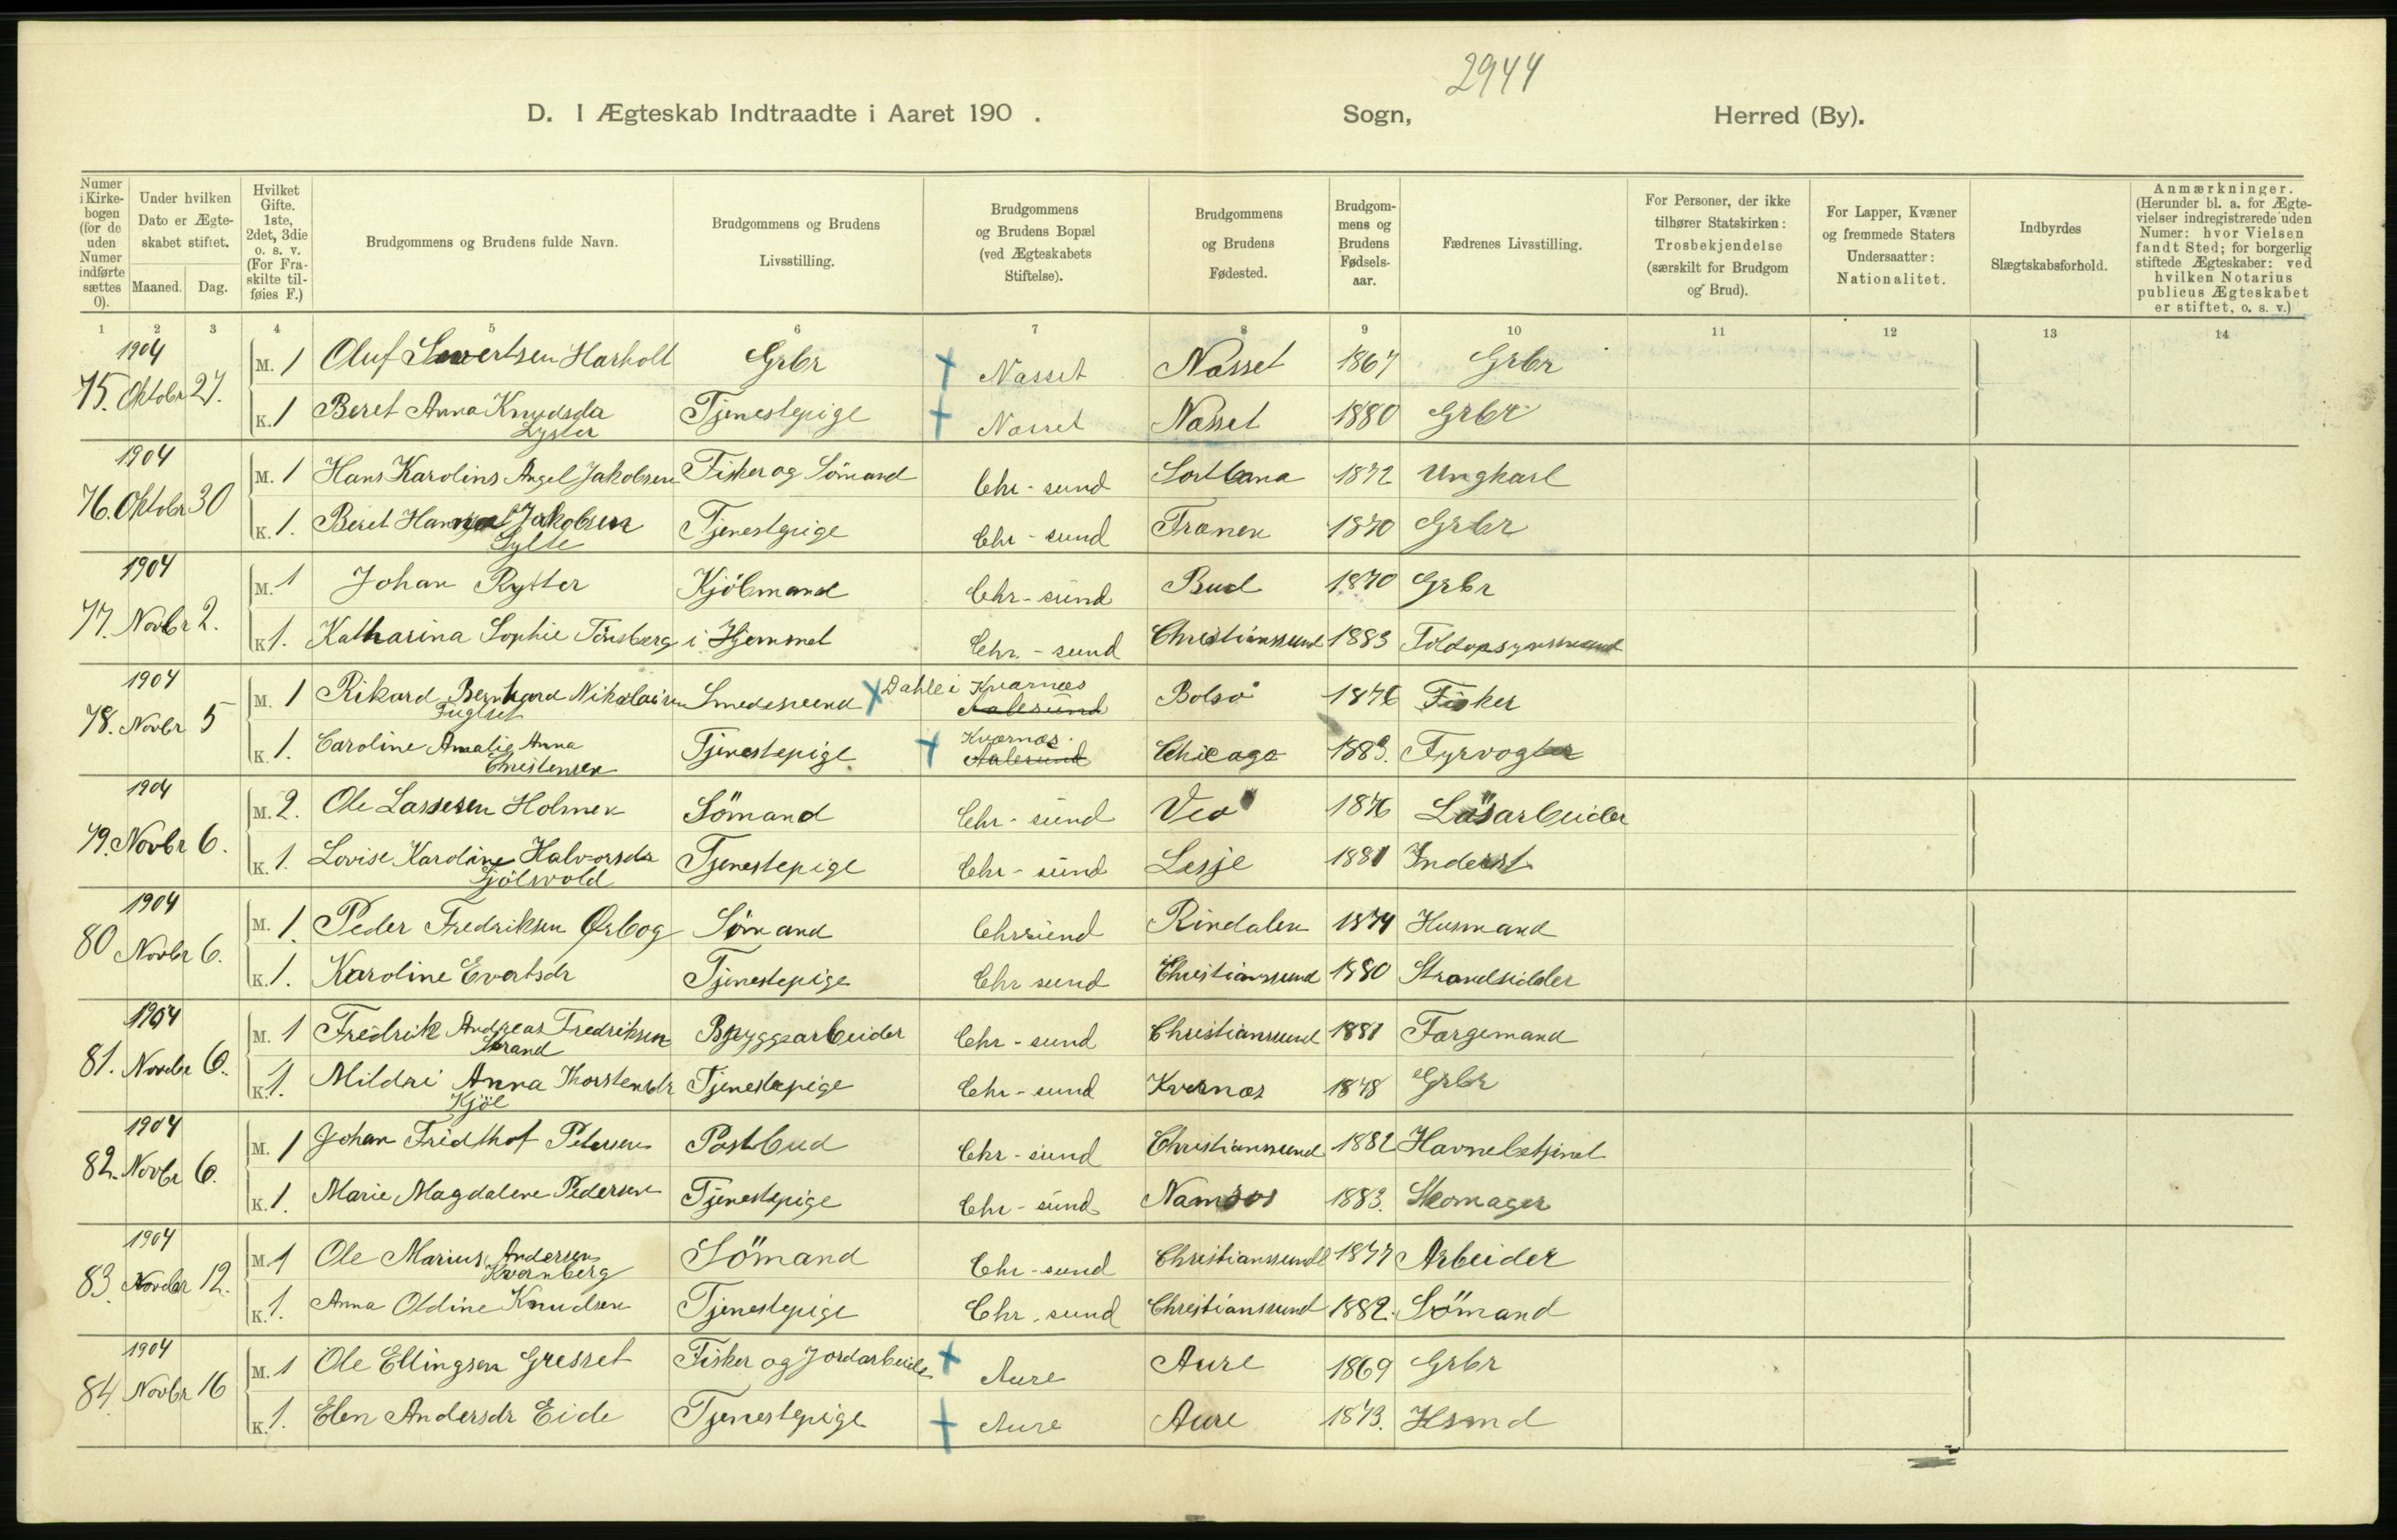 2944
D. I Ægteskab Indtraadte i Aaret 190 . Sogn, Herred (By).
Numer i Kirkebogen (for de uden Numer indførte sættes 0).
Under hvilken Dato er Ægteskabet stiftet.
Maaned. Dag.
Hvilket Gifte. 1ste, 2det, 3die o. s. v. (For Fraskilte tilføies F.)
Brudgommens og Brudens fulde Navn.
Brudgommens og Brudens Livsstilling.
Brudgommens og Brudens Bopæl (ved Ægteskabets Stiftelse).
Brudgommens og Brudens Fødested.
Brudgommens og Brudens Fødselsaar.
Fædrenes Livsstilling.
For Personer, der ikke tilhører Statskirken: Trosbekjendelse (særskilt for Brudgom og Brud).
For Lapper, Kvæner og fremmede Staters Undersaatter: Nationalitet.
Indbyrdes Slægtskabsforhold.
Anmærkninger. (Herunder bl. a. for Ægtevielser indregistrerede uden Numer: hvor Vielsen fandt Sted; for borgerlig stiftede Ægteskaber: ved hvilken Notarius publicus Ægteskabet er stiftet, o. s. v.)
1 2 3 4 5 6 7 8 9 10 11 12 13 14
1904
75. Oktobr 27. M. 1 Oluf Harholt Grbr + Nasset Nasset 1867 Grbr
K. 1 Beret Anna Knudsdr Tjenestepige + Nasset Nasset 1880 Grbr
Lyster
1904
76. Oktobr 30 M. 1 Hans Karolins Angel Jakobsen Fisker og Sömand Chr-sund 1872 Ungkarl
K. 1. Beret Jakobsen Tjenestepige Chr-sund Franen 1870 Grbr
Sylte
1904
77. Novbr 2. M. 1 Johan Rytter Kjöbmand Chr-sund Bud 1870 Grbr
K. 1. Katharina Sophie Tönsberg i Hjemmet Chr.-sund Christianssund 1883 Toldopsynsmand
1904 Dahle i Kvarnes
78. Novbr 5 M. 1 Rikard Bernhard Nikolaisen Smedsvend + Aalesund Bolsö 1876 Fisker
Fuglset
Kvarnæs.
K. 1. Caroline Amalie Anna Tjenestepige + Aalesund Chicago 1883. Fyrvogter
Christensen
1904
79. Novbr 6. M. 2. Ole Lassesen Holmen Sömand Chr-sund Veö 1876 Lösarbeider
K. 1. Lovise Karoline Halvorsdr Tjenestepige Chr-sund Lesje 1881 Inderst
Gjölsvold
1904
80 Novbr 6. M. 1. Peder Fredriksen Ørbog Sömand Chrsund Rindalen 1874 Husmand
K. 1. Karoline Evertsdr Tjenestepige Chr sund Christianssund 1880 Strandsidder
1904
81. Novbr 6. M. 1 Fredrik Andreas Fredriksen Bryggearbeider Chr-sund Christianssund 1881 Fargemand
Strand
K. 1. Mildri Anna Thorstensdr Tjenestepige Chr-sund Kvernæs 1878 Grbr
Kjöl
1904
82. Novbr 6. M. 1 Johan Fridthof Petersen Postbud Chr-sund Christianssund 1882 Havnebetjent
K. 1. Marie Magdalene Pedersen Tjenestepige Chr-sund Namsos 1883. Skomager
1904
83. Novbr 12. M. 1 Ole Marius Andersen Sömand Chr-sund Christianssund 1877 Arbeider
Kvernberg
K. 1. Anna Oldine Knudsen Tjenestepige Chr.sund Christianssund 1882. Sömand
1904
84. Novbr 16 M. 1 Ole Ellingsen Gresset Fisker og Jordarbeider + Aure Aure 1869 Grbr
K. 1. Elen Andersdr Eide Tjenestepige + Aure Aure 1873. Hsmd